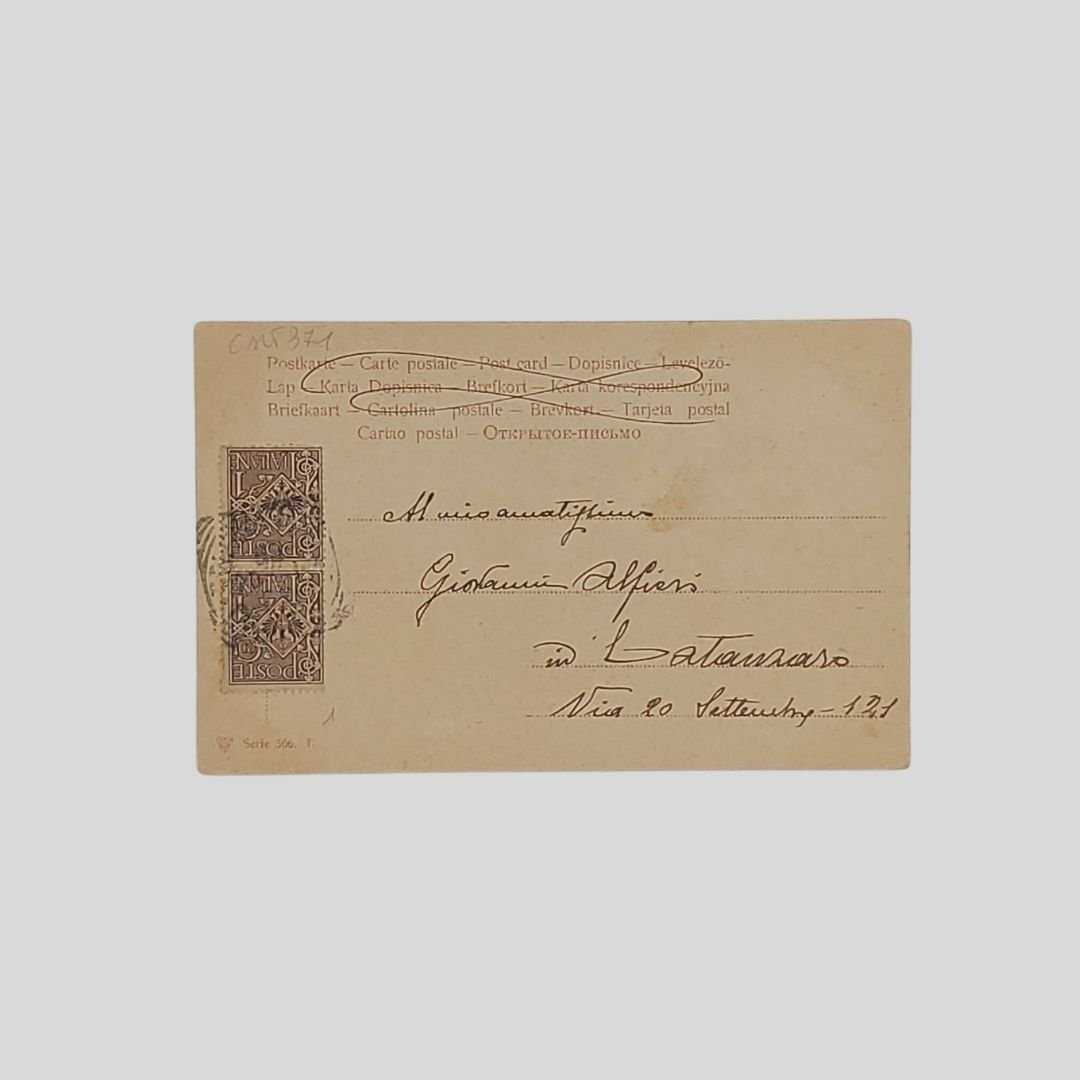 CART 371
Postkarte — Carte postale — Post card — Dopisnice — Levelező-
Lap — Karta Dopisnica — Brefkort — Karta korespondencyjna
Briefkaart — Cartolina postale — Brevkort — Tarjeta postal
Cartao postal — Открытое-письмо
POSTE ITALIANE
1
POSTE ITALIANE
1
Al mio amatissimo
Giovanni Alfieri
in Catanzaro
Via 20 Settembre - 121
1
Serie 566. 7.